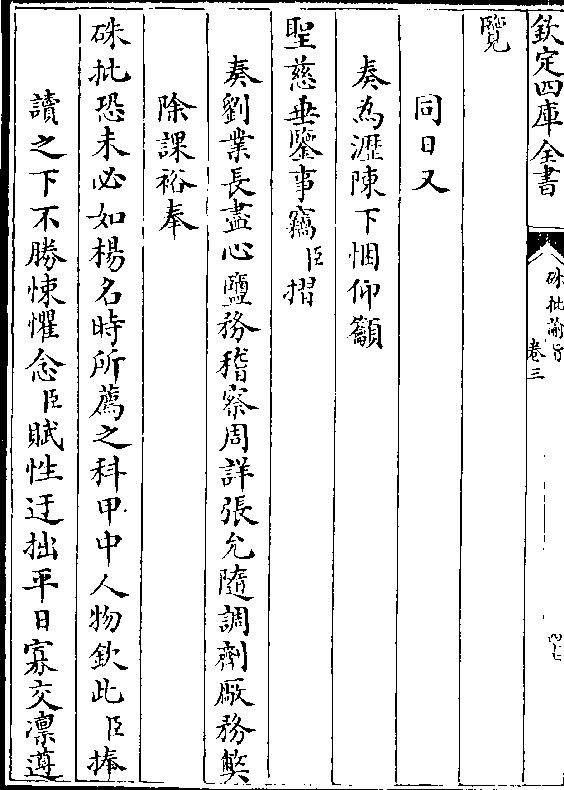 欽定四庫全書
硃批諭旨
卷三
四七
覽
同日又
奏為瀝陳下悃仰籲
聖慈垂鑒事竊臣摺
奏劉業長盡心鹽務稽察周詳張允隨調劑厰務弊
除課裕奉
硃批恐未必如楊名時所薦之科甲中人物欽此臣捧
讀之下不勝悚懼念臣賦性迂拙平日寡交凛遵